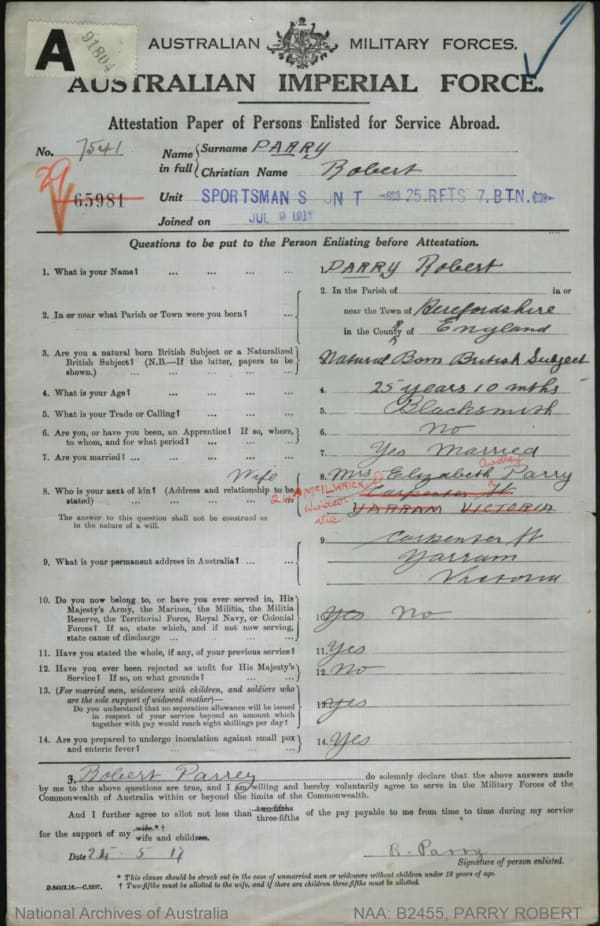 A
91804
AUSTRALIAN MILITARY FORCES.
AUSTRALIAN IMPERIAL FORCE.
Attestation Paper of Persons Enlisted for Service Abroad.
No. 7541
Name in full { Surname PARRY
Christian Name Robert
29
65981
Unit SPORTSMAN S UN T 25.RFTS 7.BTN.
Joined on JUL 191
Questions to be put to the Person Enlisting before Attestation.
1. What is your Name? ... ... ... 1. PARRY Robert
2. In or near what Parish or Town were you born? ... 2. In the Parish of in or
near the Town of Herefordshire
in the County of England
3. Are you a natural born British Subject or a Naturalized
British Subject? (N.B.—If the latter, papers to be
shown.) ... ... ... Natural Born British Subject
4. What is your Age? ... ... ... 4. 25 years 10 mths
5. What is your Trade or Calling? ... ... 5. Blacksmith
6. Are you, or have you been, an Apprentice? If so, where,
to whom, and for what period? ... ... 6. No
7. Are you married? ... ... ... 7. Yes Married
8. Who is your next of kin? (Address and relationship to be
stated) ... ... Wife 8. Mrs Elizabeth Audrey Parry
2 McILWRICK St Carpenter St
Windsor YARRAM VICTORIA
Vic
The answer to this question shall not be construed as
in the nature of a will.
9. What is your permanent address in Australia? ... ... 9. Carpenter St
Yarram
Victoria
10. Do you now belong to, or have you ever served in, His
Majesty's Army, the Marines, the Militia, the Militia
Reserve, the Territorial Force, Royal Navy, or Colonial
Forces? If so, state which, and if not now serving,
state cause of discharge ... ... ... 10. Yes No
11. Have you stated the whole, if any, of your previous service? 11. Yes
12. Have you ever been rejected as unfit for His Majesty's
Service? If so, on what grounds? ... ... 12. No
13. (For married men, widowers with children, and soldiers who
are the sole support of widowed mother)—
Do you understand that no separation allowance will be issued
in respect of your service beyond an amount which
together with pay would reach eight shillings per day? 13. Yes
14. Are you prepared to undergo inoculation against small pox
and enteric fever? ... ... ... 14. Yes
I, Robert Parrey do solemnly declare that the above answers made
by me to the above questions are true, and I am willing and hereby voluntarily agree to serve in the Military Forces of the
Commonwealth of Australia within or beyond the limits of the Commonwealth.
And I further agree to allot not less than two-fifths three-fifths of the pay payable to me from time to time during my service
for the support of my wife*† wife and children.
Date 24. 5 17 R. Parry
Signature of person enlisted.
* This clause should be struck out in the case of unmarried men or widowers without children under 18 years of age.
† Two-fifths must be allotted to the wife, and if there are children three-fifths must be allotted.
National Archives of Australia NAA: B2455, PARRY ROBERT